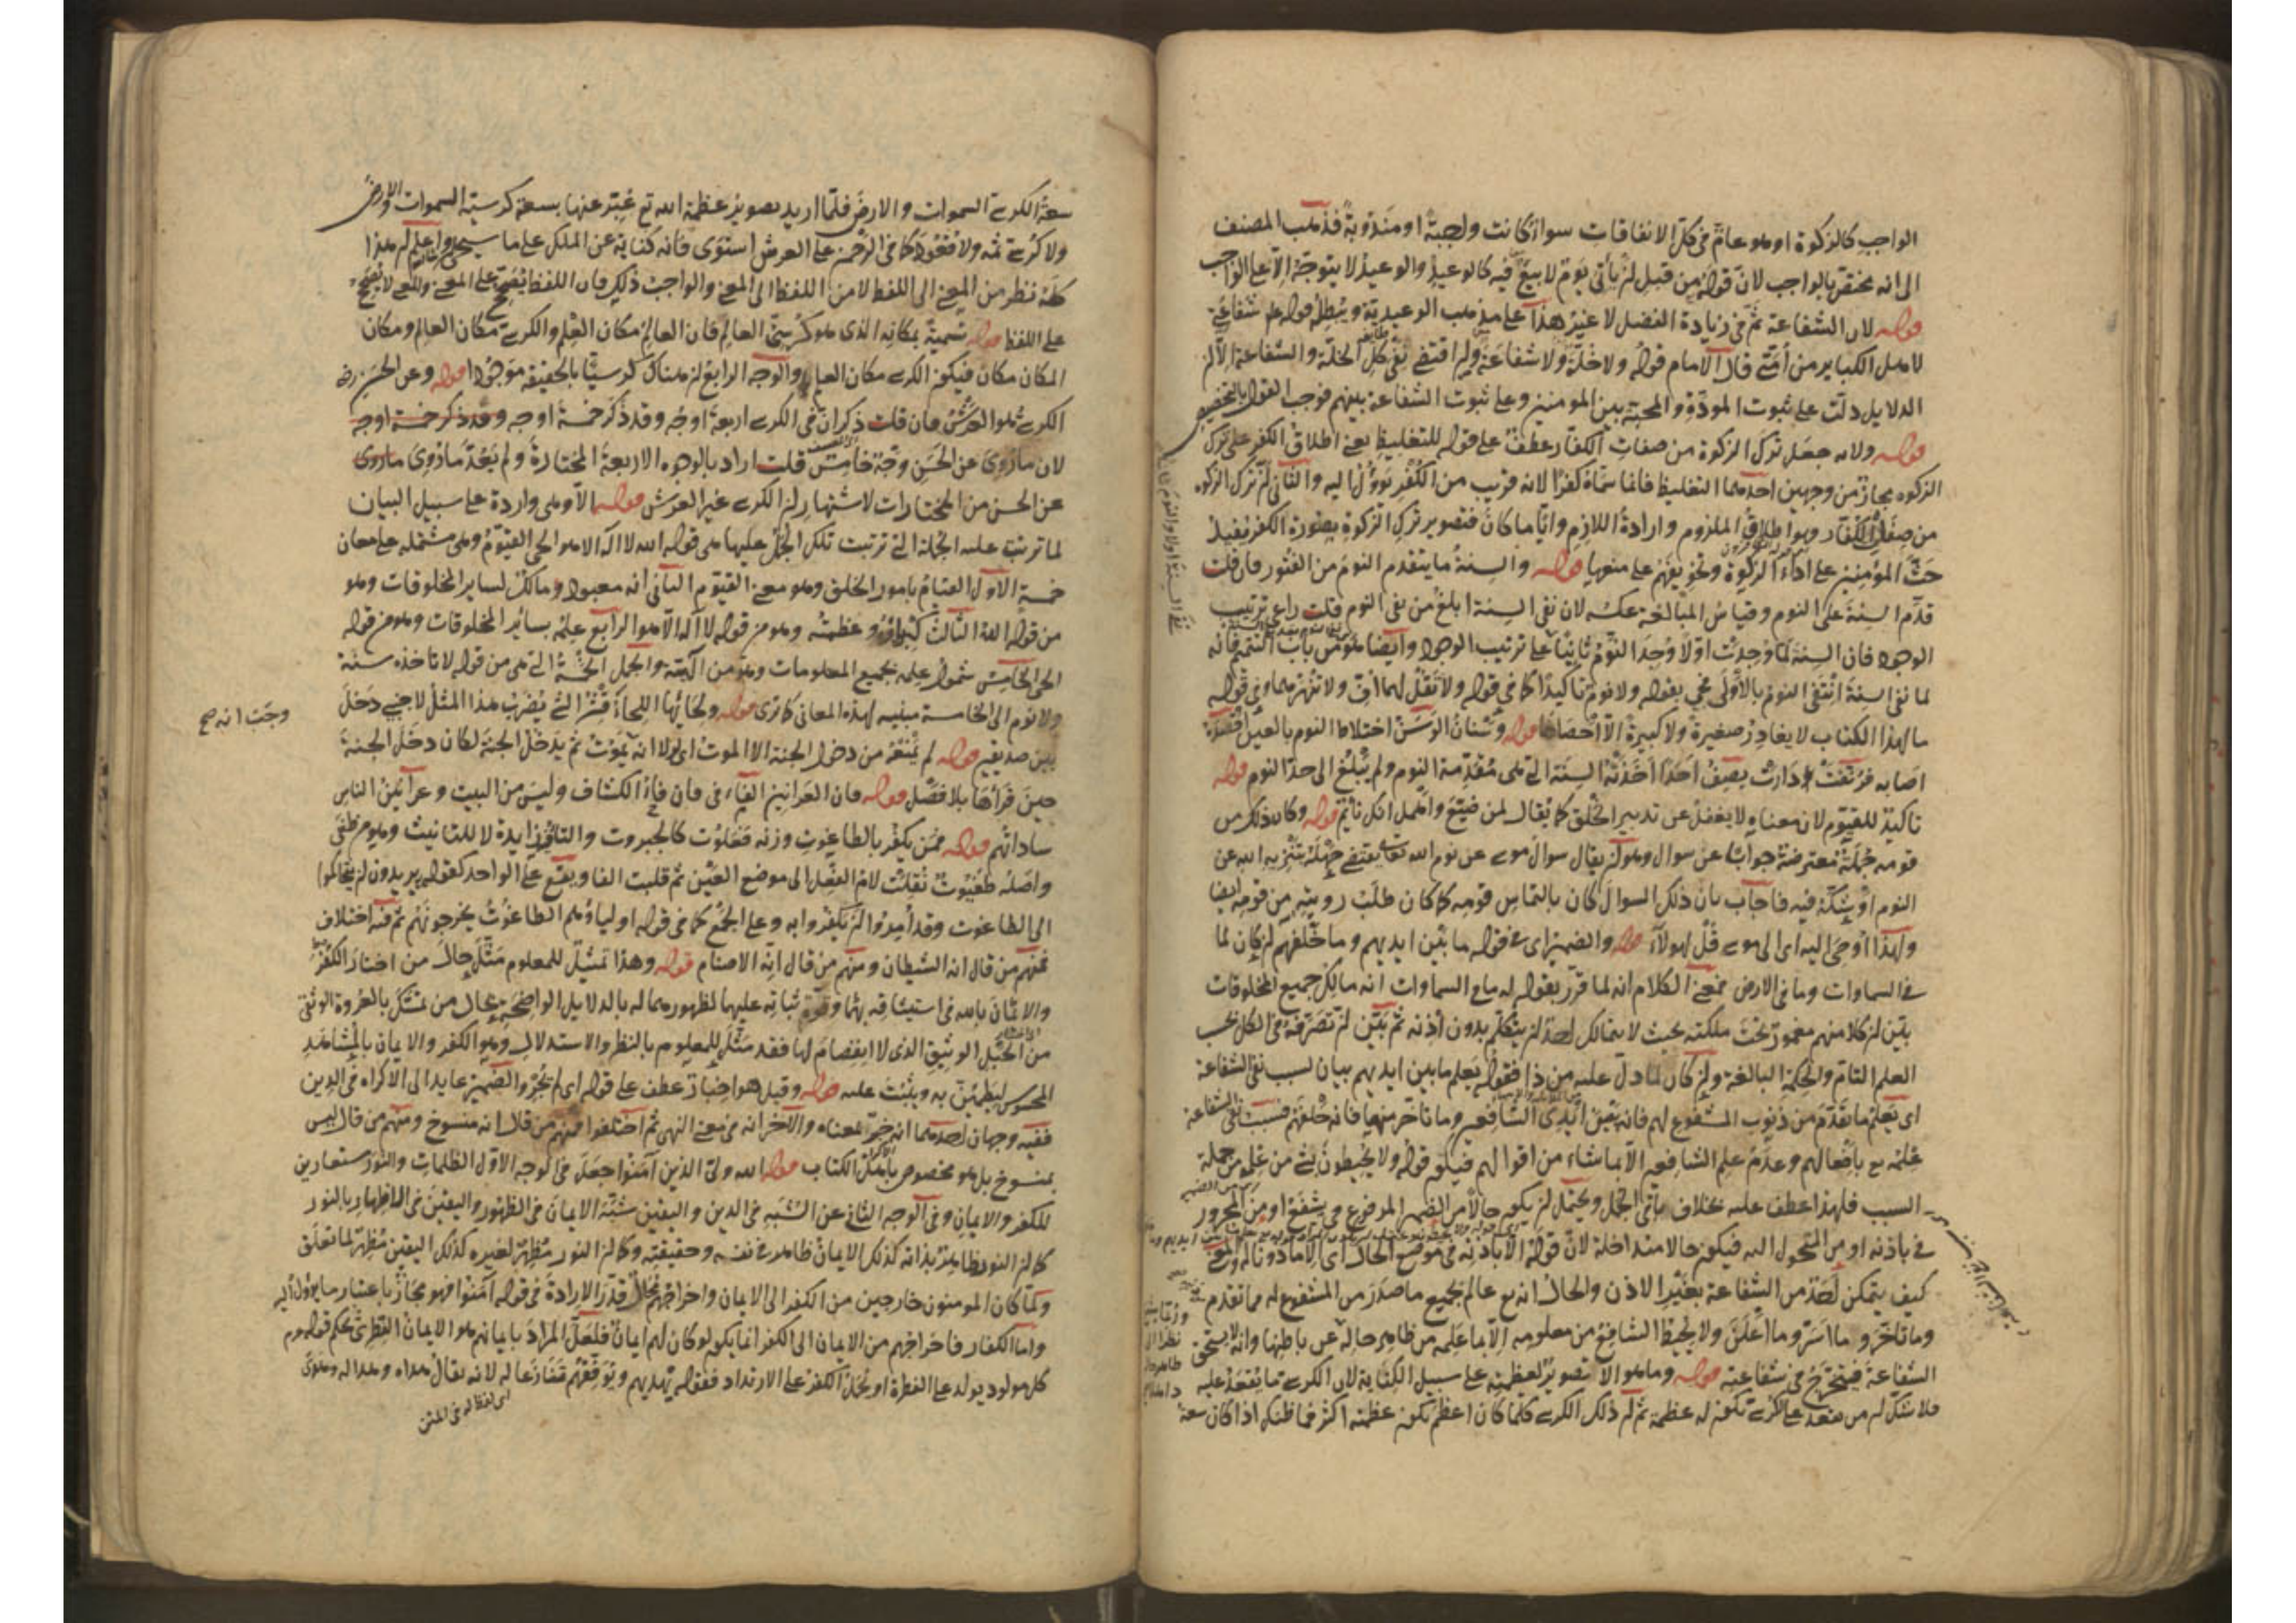 الواجب كالزكوة او هو عام فى كل الانفاقات سواء كانت واجبة او مندوبة فذهب المصنف
الى انه يختص بالواجب لان قوله من قبل ان يأتى يوم لا بيع فيه كالوعيد والوعيد لا يتوجه الا على الواجب
قوله لان الشفاعة ثم فى زيادة الفضل لا غير هذا على مذهب الوعيدية ويبطله قوله عم شفاعتى
لاهل الكباير من أمتى قال الامام قوله ولا خلة ولا شفاعة وان اقتضى نفى كل الخلة والشفاعة الا ان
الدلايل دلت على ثبوت المودة والمحبة بين المومنين وعلى ثبوت الشفاعة بينهم فوجب القول بالتخصيص
قوله ولانه جعل ترك الزكوة من صفات الكفار عطف على قوله للتغليظ يعنى اطلاق الكفر على ترك
الزكوه مجاز من وجهين احدهما التغليظ فانما سماه كفرا لانه قريب من الكفر يوول اليه والثانى ان ترك الزكوه
من صفات الكفار وهو اطلاق الملزوم وارادة اللازم وايا ما كان فتصوير ترك الزكوة بصورة الكفر يفيد
حث المؤمنين على اداء الزكوة وتخويفهم على منعها قوله والسنة ما يتقدم النوم من الفتور فان قلت
قدم السنة على النوم وقياس المبالغة عكسه لان نفى السنة ابلغ من نفى النوم قلت راعى ترتيب
الوجود فان السنة لما وجدت اولا وجد النوم ثانيا على ترتيب الوجود وايضا هو من باب التتميم فانه
لما نفى السنة انتفى النوم بالاولى فجئ بقوله ولا نوم تاكيدا كما فى قوله ولا تقل لهما اف ولا تنهرهما وفى قوله
ما لهذا الكتاب لا يغادر صغيرة ولا كبيرة الا احصاها قوله وسنان الوسن اختلاط النوم بالعين اقصده
اصابه فرنقت دارت يصف احدا اخذته السنة التى هى مقدمة النوم ولم يبلغ الى حد النوم قوله
تاكيد للقيوم لان معناه لا يغفل عن تدبير الخلق كما يقال لمن ضيع واهمل انك نائم قوله وكان ذلك من
قومه جملة معترضة جوابا عن سوال وهو ان يقال سوال موسى عن نوم الله تعالى يقتضى جهله بتنزيه الله عن
النوم او شكه فيه فاجاب بان ذلك السوال كان بالتماس قومه كما كان طلب رويته من قومه ايضا
ولهذا اوحى اليه اى الى موسى قل لهولاء قوله والضمير اى فى قوله ما بين ايديهم وما خلفهم ان كان لما
فى السماوات وما فى الارض فمعنى الكلام انه لما قرر بقوله له ما فى السماوات انه مالك جميع المخلوقات
بين ان كلا منهم مغمور تحت ملكته بحيث لا يتمالك احد ان يتكلم بدون اذنه ثم بين ان تصرفه فى الكل بحسب
العلم التام والحكمة البالغة وان كان لما دل عليه من ذا فقوله يعلم ما بين ايديهم بيان لسبب نفى الشفاعة
اى يعلم ما تقدم من ذنوب المشفوع لهم فانه بين ايدى الشافعين وما تاخر منها فانه خلفهم فسبب نفى الشفاعة
علمه تع بافعالهم وعدم علم الشافعين الا بما شاء من اقوالهم فيكون قوله ولا يحيطون بشئ من علمه من جملة
السبب فلهذا عطف عليه بخلاف باقى الجمل ويحتمل ان يكون حالا من الضمير المرفوع فى يشفع او من المجرور
فى باذنه او من المتحول اليه فيكون حالا متداخلة لان قوله الا باذنه فى موضع الحال اى الا ماذونا له والمعنى
كيف يتمكن احد من الشفاعة بغير الاذن والحال انه تع عالم بجميع ما صدر من المشفوع له مما تقدم
وما تاخر وما اسر وما اعلن ولا يحيط الشافع من معلومه الا بما علمه من ظاهر حاله عن باطنها وانه لا يستحق
الشفاعة فيتحرج فى شفاعته قوله وما هو الا تصوير لعظمته على سبيل الكناية لان الكرسى ما يقعد عليه
فلا شك ان من يقعد على الكرسى تكون له عظمة ثم ان ذلك الكرسى كلما كان اعظم يكون عظمته اكثر فما ظنك اذا كان سعة
سعة الكرسى السموات والارض فلما اريد تصوير عظمة الله تع عبر عنها بسعة كرسيه السموات والارض
ولا كرسى ثمه ولا قعود كما فى الرحمن على العرش استوى فانه كناية عن الملك على ما سيجئ واعلم ان هذا
كله نظر من المعنى الى اللفظ لا من اللفظ الى المعنى والواجب ذلك فان اللفظ يتفرع على المعنى والمعنى لا يتفرع
على اللفظ قوله تسمية بمكانه الذى هو كرسى العالم فان العالم مكان العلم والكرسى مكان العالم ومكان
المكان مكان فيكون الكرسى مكان العلم والوجه الرابع ان هناك كرسيا بالحقيقة موجودا قوله وعن الحسن رضه
الكرسى هو العرش فان قلت ذكر ان فى الكرسى اربعة اوجه وقد ذكر خمسة اوجه وقد ذكر خمسة اوجه
لان ما روى عن الحسن وجه خامس قلت اراد بالوجوه الاربعة المختارة ولم يعد ما روى ما روى
عن الحسن من المختارات لاشتهار ان الكرسى غير العرش قوله الا وهى واردة على سبيل البيان
لما ترتبت عليه الجملة التى ترتبت تلك الجمل عليها هى قوله الله لا اله الا هو الحى القيوم وهى مشتمله على معان
خمسة الاول القيام بامور الخلق وهو معنى القيوم الثانى انه معبود ومالك لساير المخلوقات وهو
من قوله الله الثالث كبرياؤه وعظمته وهو من قوله لا اله الا هو الرابع علمه بسائر المخلوقات وهو من قوله
الحى الخامس شمول علمه بجميع المعلومات وهو من الهيته والجمل الخمسة التى هى من قوله لا تاخذه سنة
ولا نوم الى الخامسة مبينه لهذه المعانى كما ترى قوله ولحايها اللحاء قشر الشئ يضرب هذا المثل لاجنبى دخل
وجب انه صح
بين صديقين قوله لم يمنعه من دخول الجنة الا الموت اى لولا انه يموت ثم يدخل الجنة لكان دخل الجنة
حين قرأها بلا فصل قوله فان العرانين الفاء فى فان فاء الكشاف وليس من البيت وعرانين الناس
ساداتهم قوله فمن يكفر بالطاغوت وزنه فعلوت كالجبروت والتاء زايدة لا للتانيث وهو من طغى
واصله طغيوت نقلت لام الفعل الى موضع العين ثم قلبت الفا ويقع على الواحد كقوله يريدون ان يتحاكموا
الى الطاغوت وقد أمروا ان يكفروا به وعلى الجمع كما فى قوله اولياؤهم الطاغوت يخرجونهم ثم فيه اختلاف
فمنهم من قال انه الشيطان ومنهم من قال انه الاصنام قوله وهذا تمثيل للمعلوم مثل حال من اختار الكفر
والايمان بالله فى استيثاقه بهما وقوة ثباته عليهما لظهورهما له بالدلايل الواضحة بحال من تمسك بالعروة الوثقى
من الحبل الوثيق الذى لا انفصام لها فقد مثل المعلوم بالنظر والاستدلال وهو الكفر والايمان بالمشاهد
المحسوس ليطمئن به ويثبت عليه قوله وقيل هو اخبار عطف على قوله اى لم يجر والضمير عايد الى الاكراه فى الدين
ففيه وجهان احدهما انه خبر لمعناه والآخر انه فى معنى النهى ثم اختلفوا فمنهم من قال انه منسوخ ومنهم من قال ليس
بمنسوخ بل هو مخصوص باهل الكتاب قوله الله ولى الذين آمنوا جعل فى الوجه الاول الظلمات والنور مستعارين
للكفر والايمان وفى الوجه الثانى عن الشبه فى الدين واليقين شبه الايمان فى الظهور واليقين فى الاظهار بالنور
كما ان النور ظاهر بذاته كذلك الايمان ظاهر فى نفسه وحقيقته وكما ان النور مظهر لغيره كذلك اليقين مظهر لما تعلق
ولما كان المومنون خارجين من الكفر الى الايمان واخراجهم محال قدر الارادة فى قوله آمنوا فهو مجاز باعتبار ما يؤول اليه
واما الكفار فاخراجهم من الايمان الى الكفر انما يكون لو كان لهم ايمان فلعل المراد بايمانهم هو الايمان الفطرى بحكم قوله عم
كل مولود يولد على الفطرة او يحمل الكفر على الارتداد فقوله يهديهم ويوفقهم تنازعا له لانه يقال هداه وهدا له
اى لفظ له فى المتن